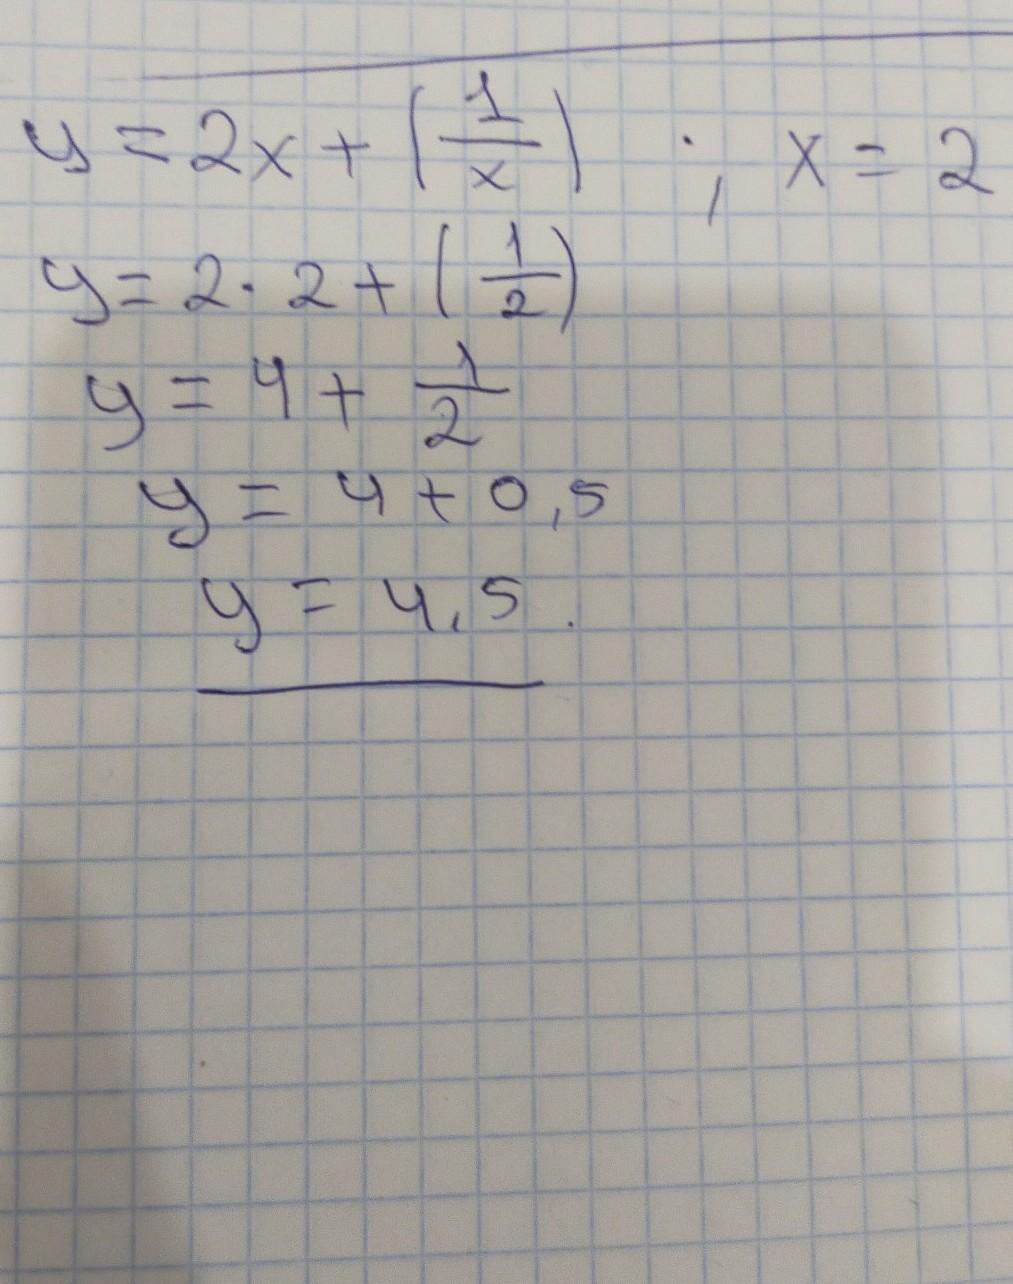 y = 2x + (1/x) ; x = 2
y = 2 · 2 + (1/2)
y = 4 + 1/2
y = 4 + 0,5
y = 4,5.